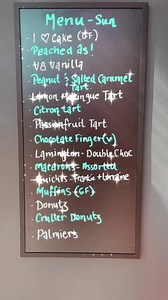 Menu - Sun
- I ♡ Cake (GF)
- Peached as!
- V8 Vanilla
- Peanut & Salted Caramel
Tart
- Lemon Meringue Tart
- Citron tart
- Passionfruit Tart
- Chocolate Finger (v)
- Lamington - Double Choc
- Macarons - Assorted
- Quichs - + Lorraine
- Muffins (GF)
- Donuts
- Cruller Donuts
- Palmiers